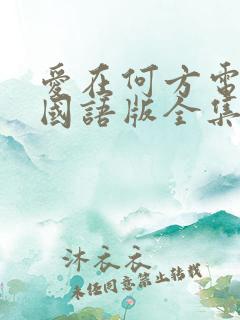 愛在何方電
國語版全集
沐衣衣
未經同意禁止轉載